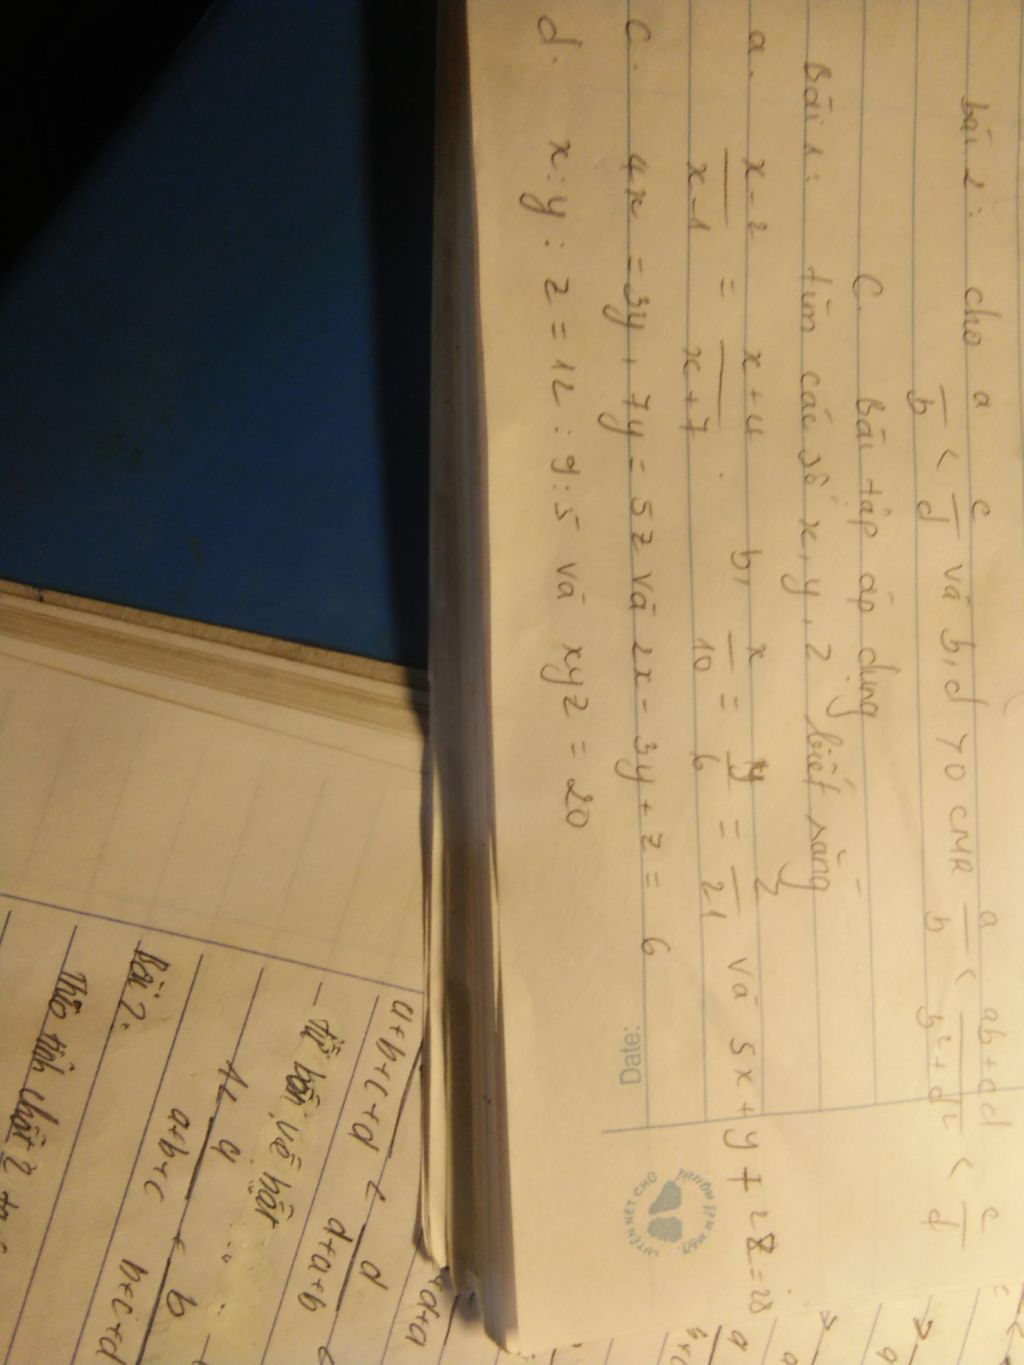 bài 2: cho a/b < c/d và b,d >0 CMR a/b < ab+cd/b²+d² < c/d
C. Bài tập áp dụng
Bài 1: tìm các số x, y, z biết rằng
a. x-2/x-1 = x+4/x+7 . b, x/10 = y/6 = z/21 và 5x+y+2z=28
c. 4x = 3y, 7y = 5z và 2x - 3y + z = 6
d. x:y:z = 12:9:5 và xyz = 20
Date:
LUYỆN NÉT CHỮ
RÈN NẾT NGƯỜI
a+b+c+d < d/d+a+b
từ bốn vế
a+b+c b+c+d
Bài 2.
Theo tính chất 2